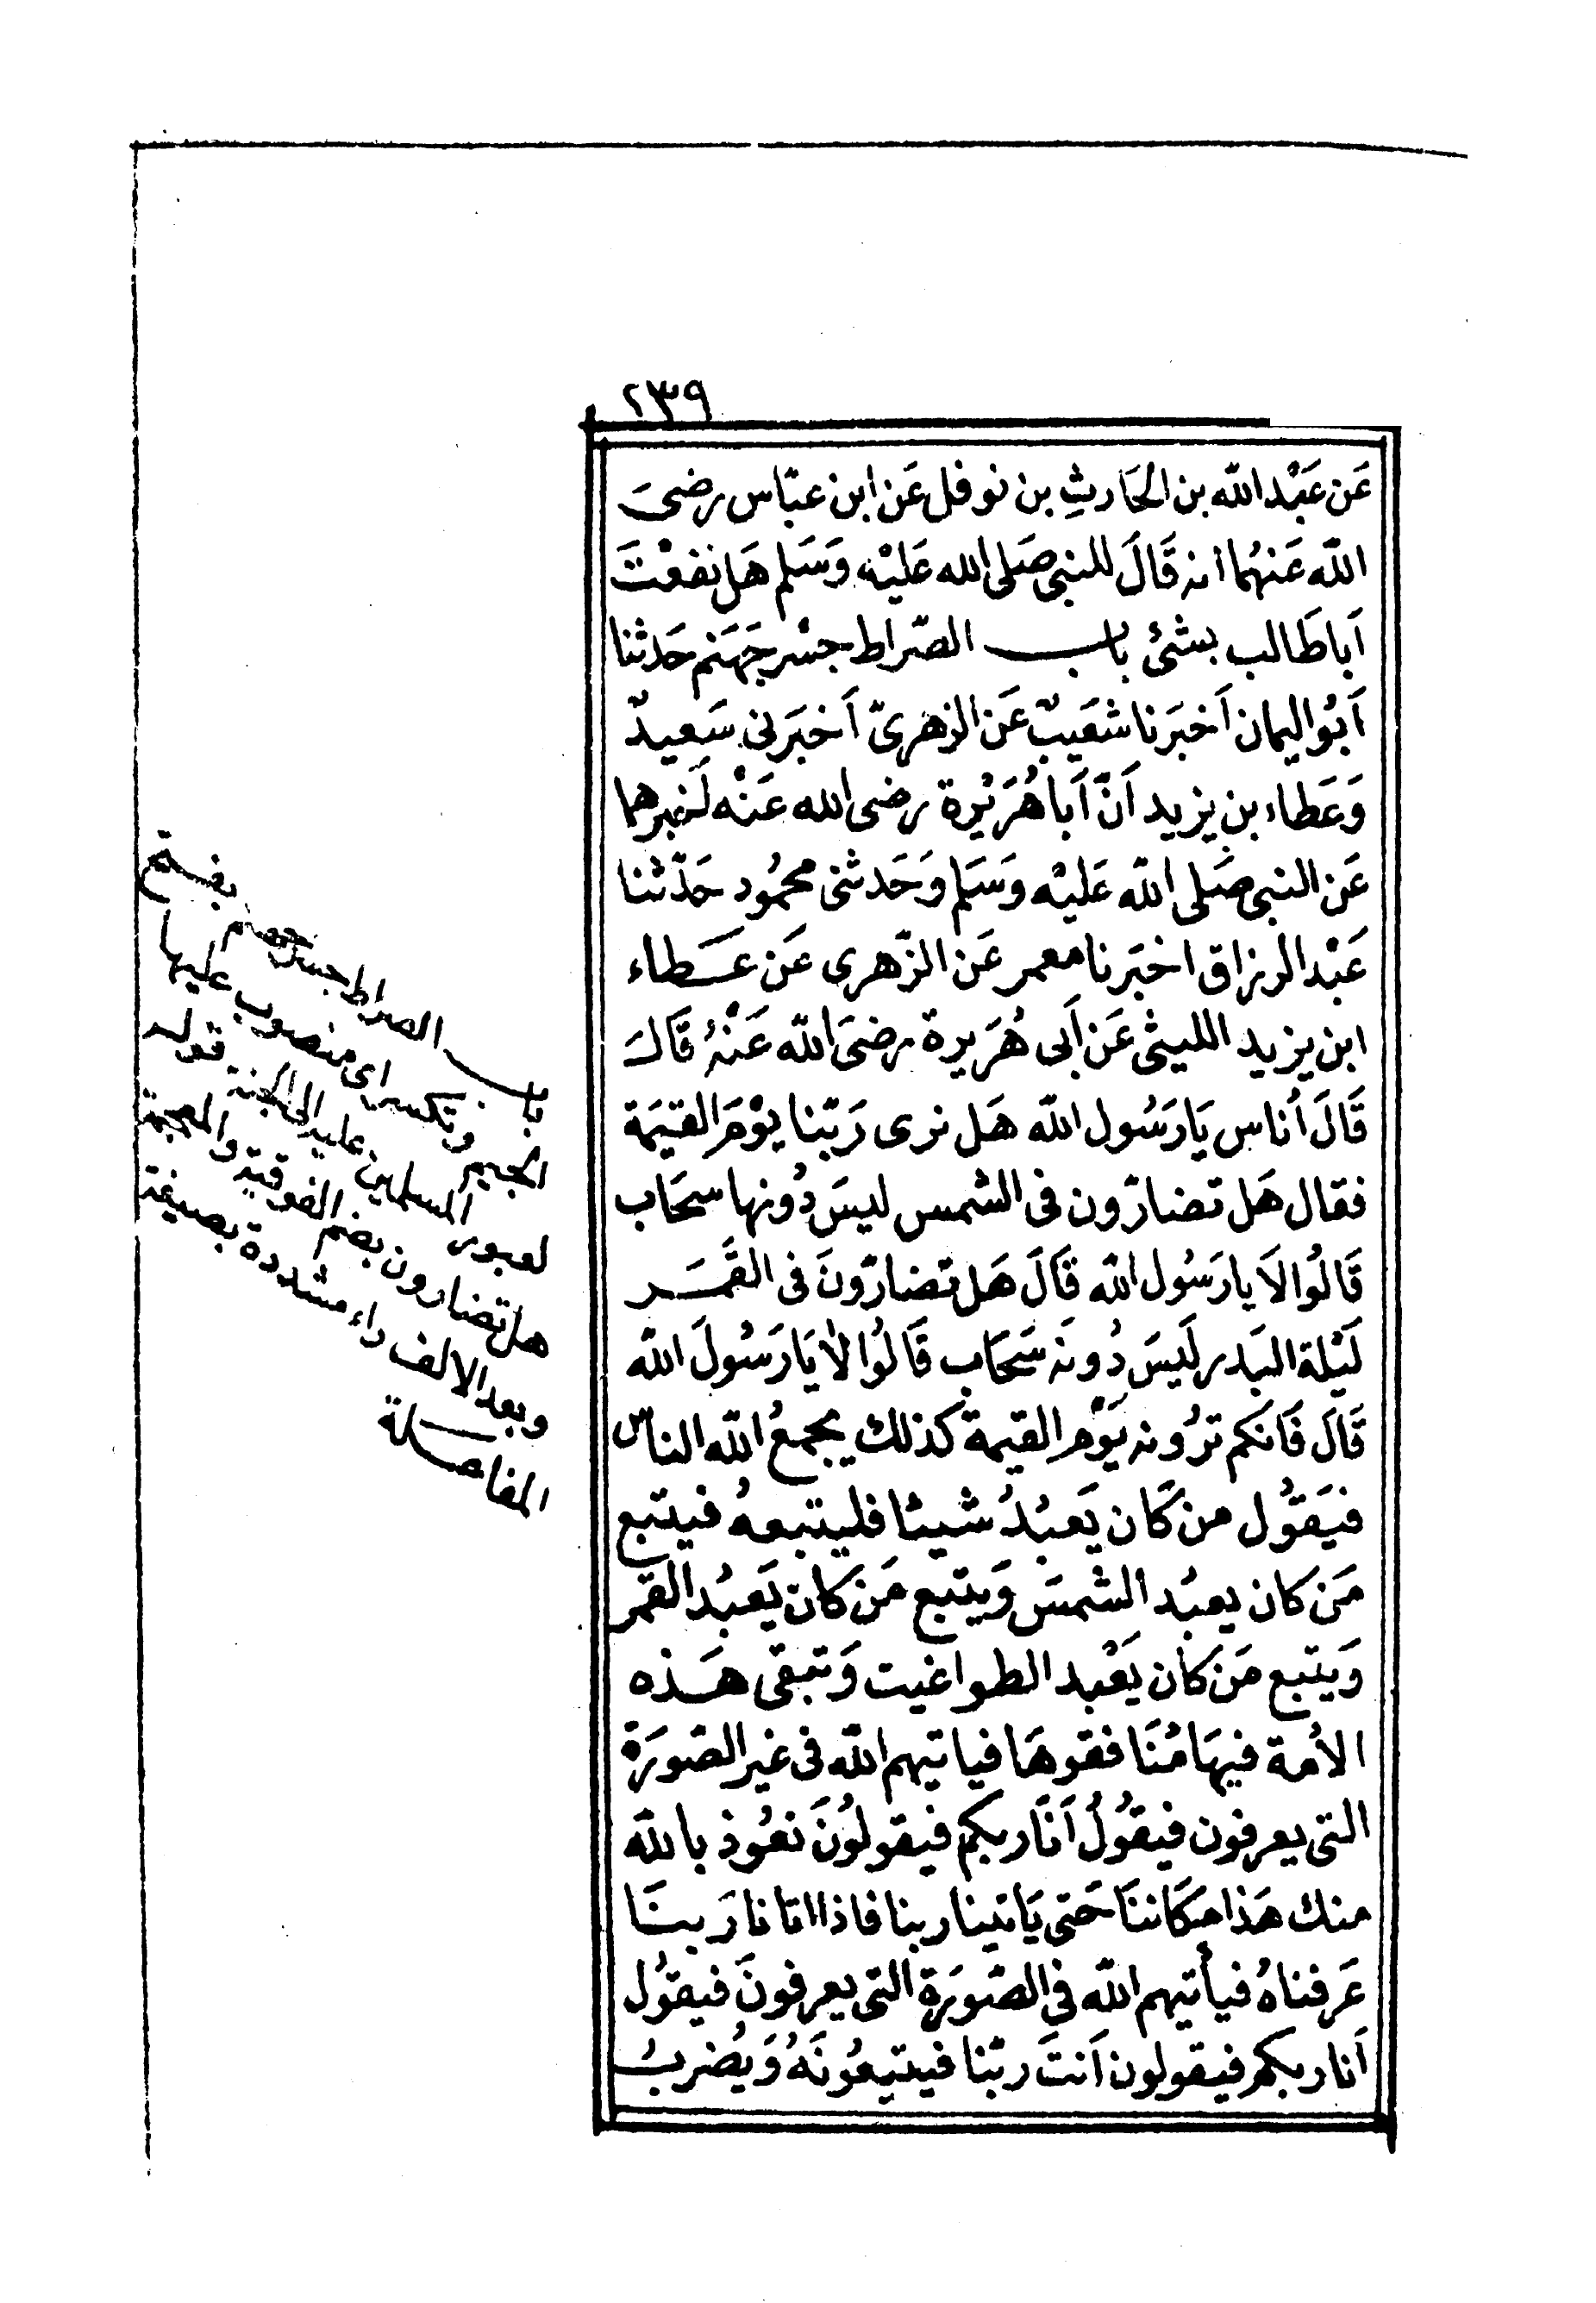 ٢٣٩
عَن عَبْد الله بن الحَارثِ بن نوفل عَن ابن عبّاس رضىَ
الله عَنهُما انه قَالَ للنبى صَلى الله عَليْه وَسَلم هَل نفعْتَ
اَبا طَالب بشئ باب الصّراط جسْر جَهَنم حَدثنا
اَبُو اليمان اَخبَرنا شعَيبٌ عَن الزهرىّ اَخبَرنى سَعيدٌ
وَعَطاء بن يزيد اَنّ اَبا هُرَيْرة رضى الله عَنْه اَخبرهما
عَن النبى صَلى الله عَليْه وَسَلم وَحَدثنى محمُود حَدّثنا
عَبْد الرزاق اخبَرنا معمر عَن الزّهرى عَن عَطاء
ابن يزيد الليثى عَن اَبى هُرَيرة رضىَ الله عَنْهُ قَالَ
قَالَ اُناس يَا رَسُول الله هَل نرى رَبّنا يوْمَ القيٰمَة
فقال هَل تضارّون فى الشمس ليسَ دُونها سحَاب
قَالُوا لاَ يا رَسُول الله قَالَ هَل تضارّونَ فى القَمَر
لَيْلة البَدر لَيسَ دُونَه سَحَاب قَالُوا لاَ يَا رَسُولَ الله
قَالَ فَانكم ترُونه يَوْم القيمة كذلك يجمعُ الله الناس
فيَقُول من كَان يَعبُدُ شيئا فليتبعهُ فيتبع
مَن كان يعبُد الشمسَ وَيتبع مَن كان يَعبُد القمر
وَيتبع مَن كان يَعْبد الطواغيت وَتبقى هَذه
الاُمة فيهَا مُنَافقوهَا فياتيهم الله فى غير الصّورَة
التى يعرفون فيقُولُ اَنَا ربكم فيقولُونَ نعُوذ بالله
منك هَذا مكَاننَا حَتى يَاتينا ربنا فاذا اتانا رَبنَا
عَرفناهُ فيأتيهم الله فى الصّورَة التى يعرفونَ فيقُول
اَنا ربكم فيقولون اَنتَ ربّنا فيتبعُونَهُ وَيُضربُ
باب الصراط جسر جهنم بفتح
الجيم وتكسر اى منصوب عليها
لعبور المسلمين عليه الى الجنة قوله
هل تضارون بضم الفوقية والمعجمة
وبعد الالف راء مشددة بصيغة
المفاعلة